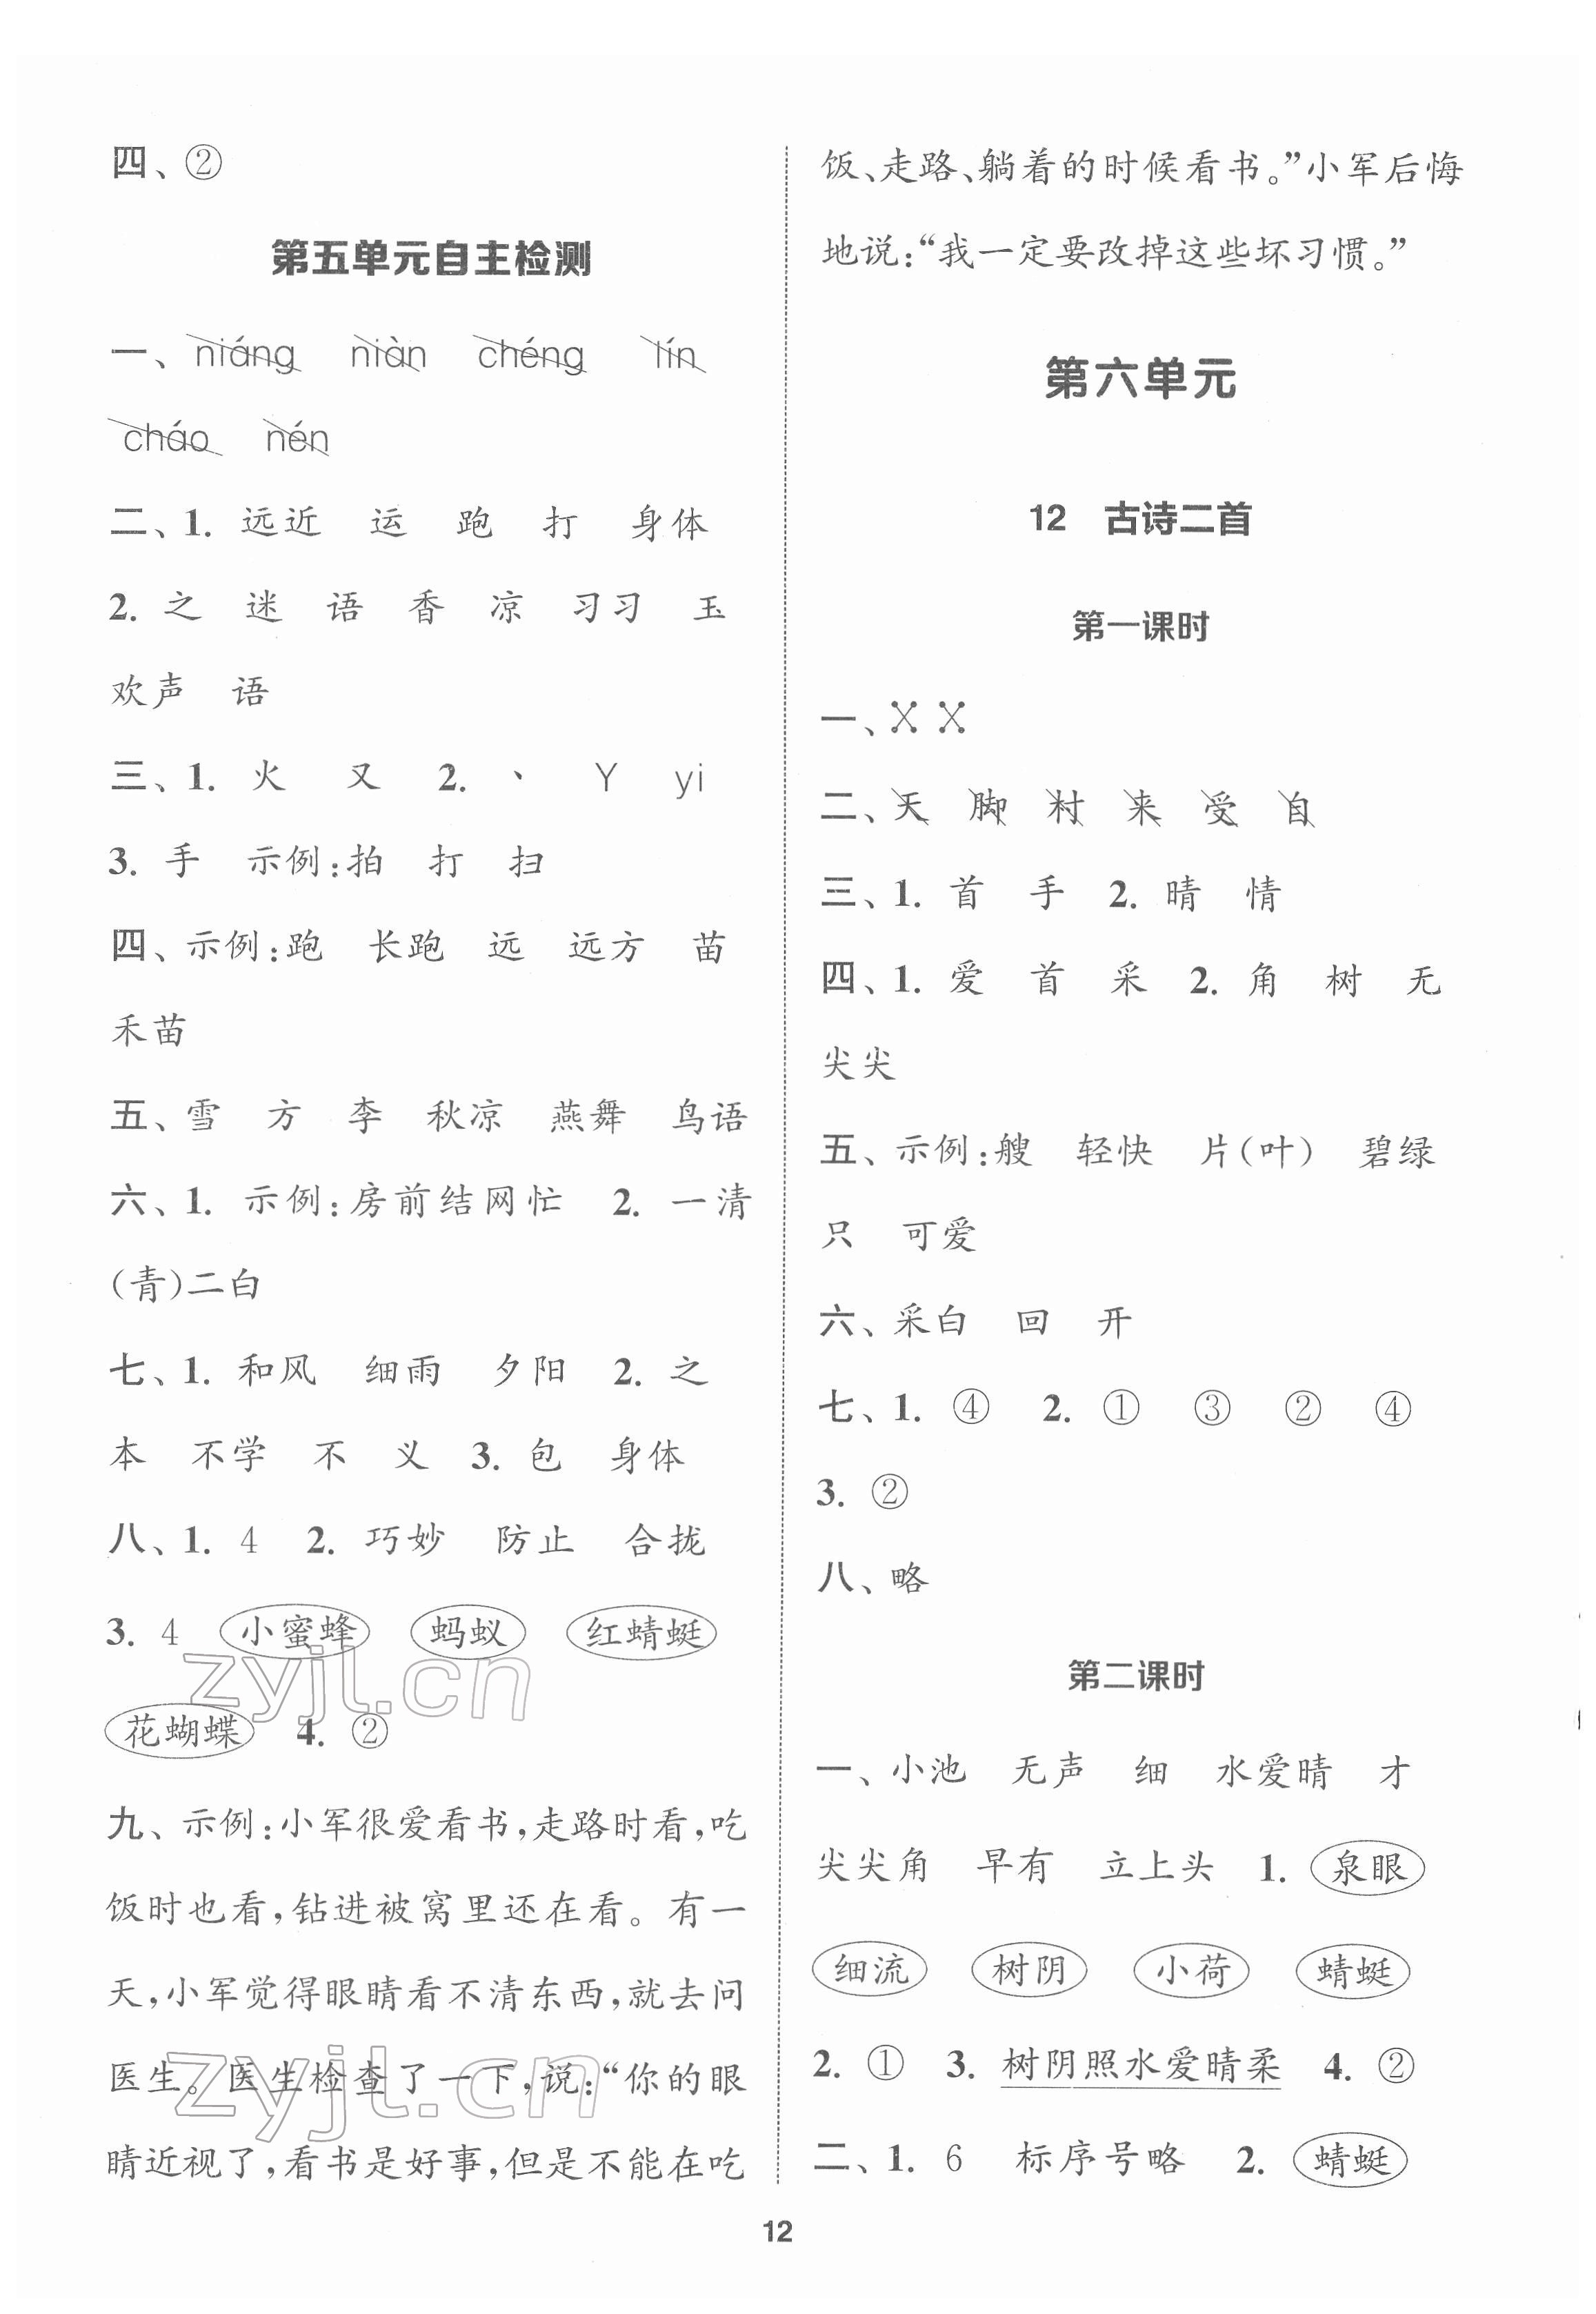 四、②
第五单元自主检测
一、niáng niàn chéng lín
cháo nén
二、1. 远近 运 跑 打 身体
2. 之 迷 语 香 凉 习习 玉
欢声 语
三、1. 火 又 2. 丶 Y yi
3. 手 示例:拍 打 扫
四、示例:跑 长跑 远 远方 苗
禾苗
五、雪 方 李 秋凉 燕舞 鸟语
六、1. 示例:房前结网忙 2. 一清
(青)二白
七、1. 和风 细雨 夕阳 2. 之
本 不学 不 义 3. 包 身体
八、1. 4 2. 巧妙 防止 合拢
3. 4 小蜜蜂 蚂蚁 红蜻蜓
花蝴蝶 4. ②
九、示例:小军很爱看书,走路时看,吃
饭时也看,钻进被窝里还在看。有一
天,小军觉得眼睛看不清东西,就去问
医生。医生检查了一下,说:“你的眼
睛近视了,看书是好事,但是不能在吃
饭、走路、躺着的时候看书。”小军后悔
地说:“我一定要改掉这些坏习惯。”
第六单元
12 古诗二首
第一课时
一、
二、天 脚 村 来 受 自
三、1. 首 手 2. 晴 情
四、1. 爱 首 采 2. 角 树 无
尖尖
五、示例:艘 轻快 片(叶) 碧绿
只 可爱
六、采白 回 开
七、1. ④ 2. ① ③ ② ④
3. ②
八、略
第二课时
一、小池 无声 细 水爱晴 才
尖尖角 早有 立上头 1. 泉眼
细流 树阴 小荷 蜻蜓
2. ① 3. 树阴照水爱晴柔 4. ②
二、1. 6 标序号略 2. 蜻蜓
12
zyjl.cn
zyjl.cn